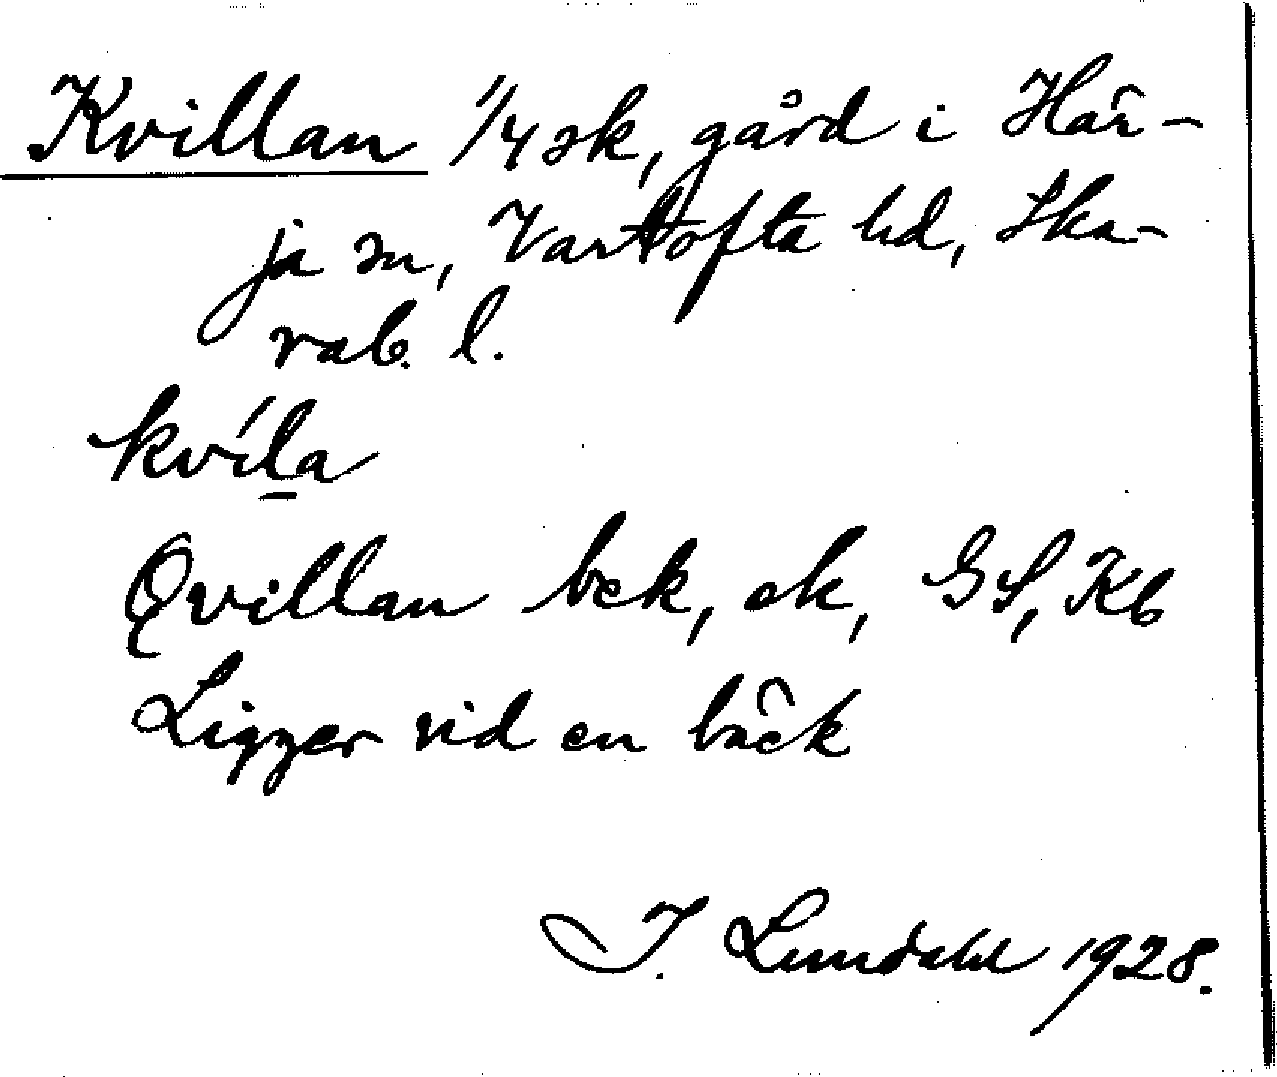 Kvillan 1/4 sk, gård i Här-
ja sn, Vartofta hd, Ska-
rab. l.
kvíla
Qvillan bek, ek, GS, Kb
Ligger vid en bäck
I. Lundahl 1928.